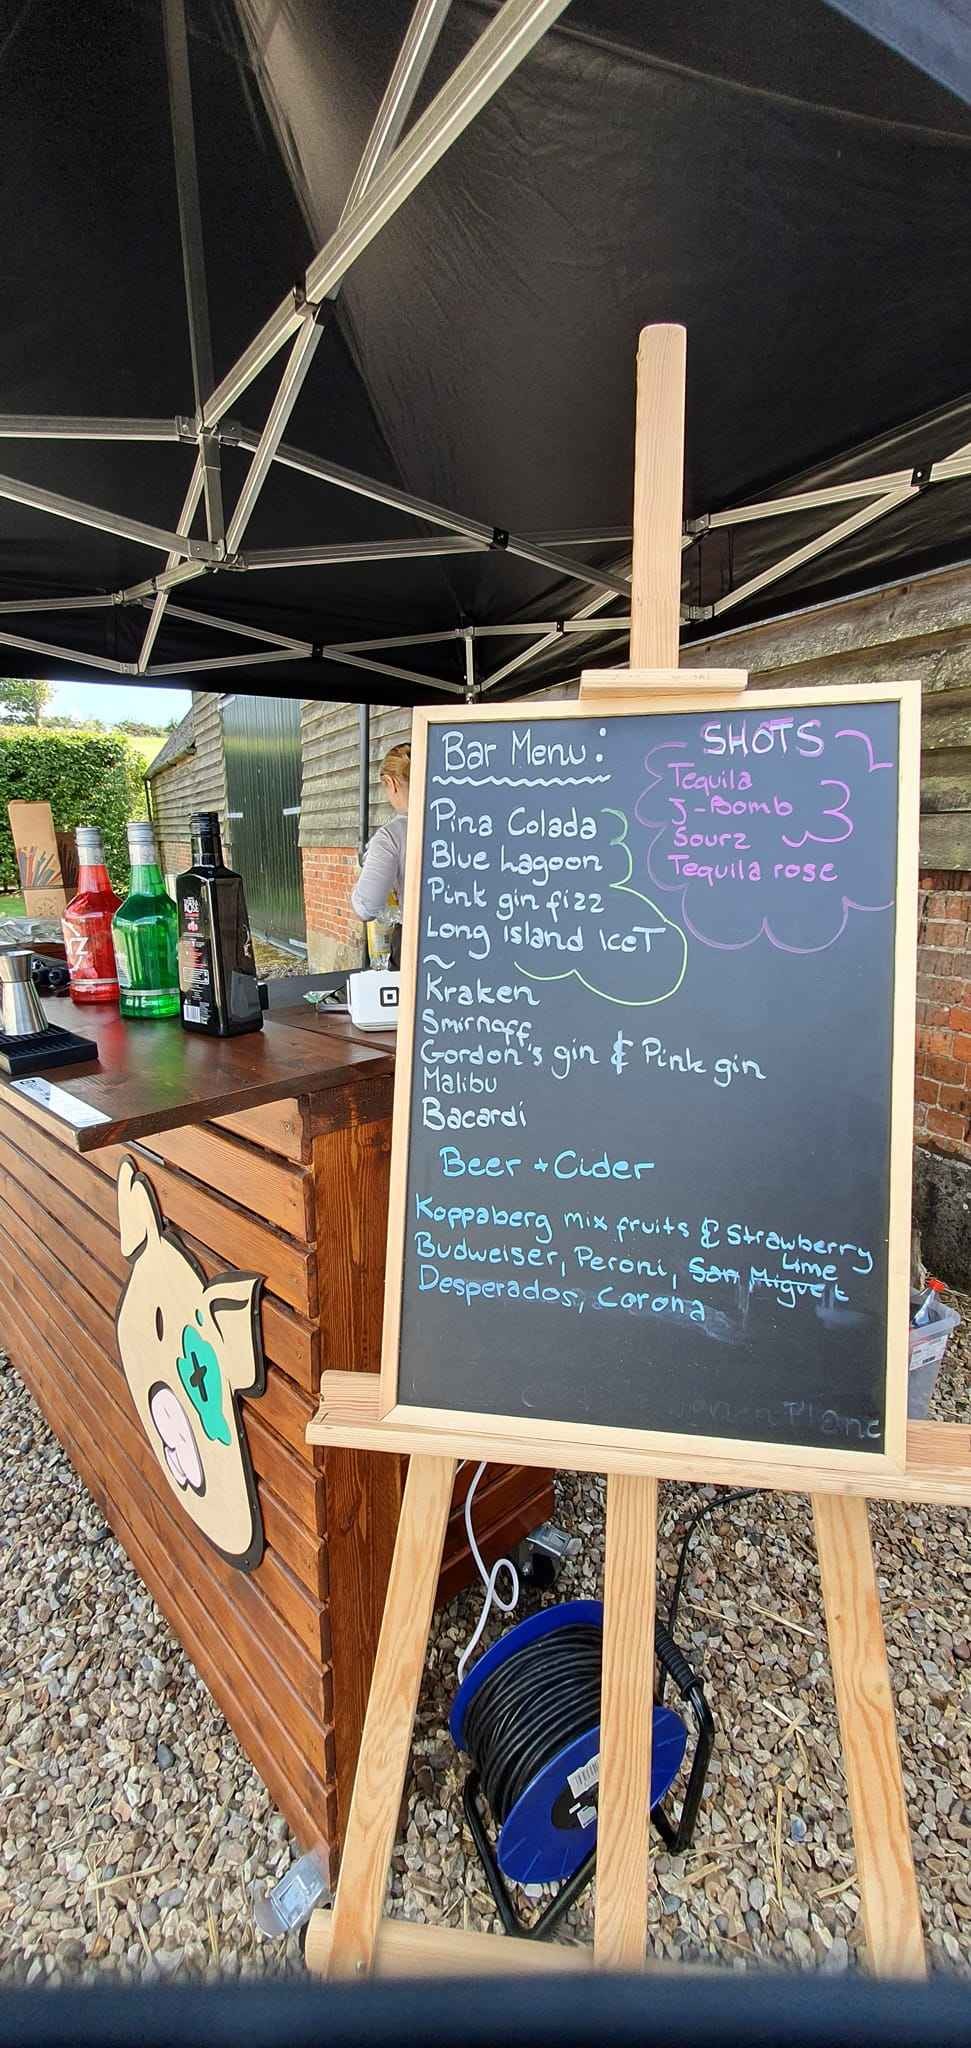 Bar Menu:
Pina Colada
Blue Lagoon
Pink gin fizz
Long Island IceT
~
Kraken
Smirnoff
Gordon's gin & Pink gin
Malibu
Bacardi
SHOTS
Tequila
J-Bomb
Sourz
Tequila rose
Beer + Cider
Koppaberg mix fruits & Strawberry Lime
Budweiser, Peroni, San Miguel
Desperados, Corona